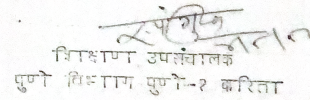 शिक्षण उपसंचालक
पुणे विभाग पुणे-१ करिता